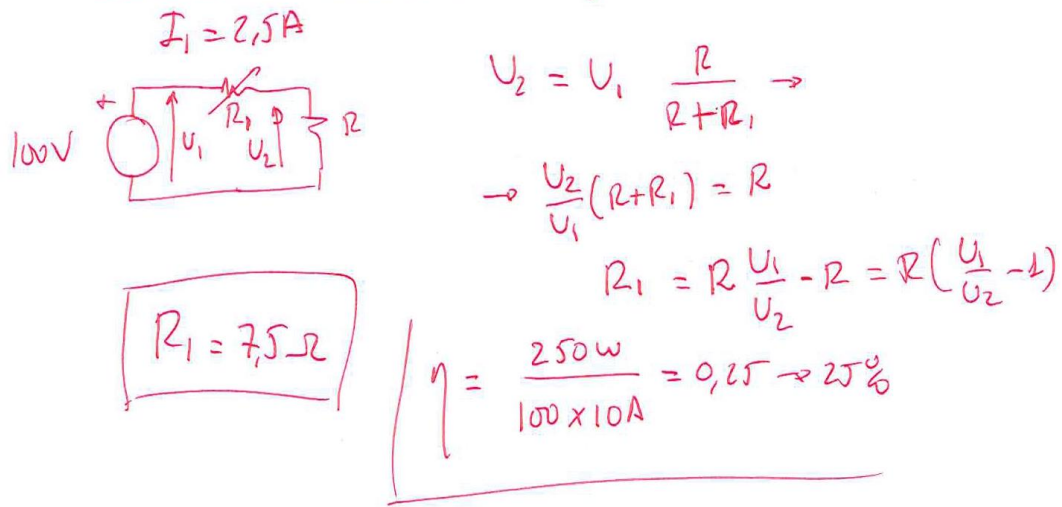 I₁ = 2,5A
100V
+
U₁
R₁
U₂
R
U₂ = U₁ R/(R+R₁) →
→ U₂/U₁ (R+R₁) = R
R₁ = R U₁/U₂ - R = R(U₁/U₂ - 1)
R₁ = 7,5Ω
η = 250W/(100×10A) = 0,25 → 25%